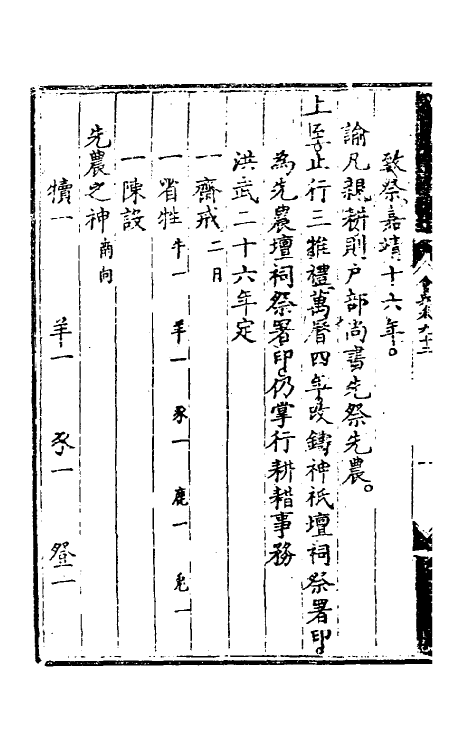 會典卷九十二
致祭嘉靖十六年。
諭凡親耕則戶部尚書先祭先農。
上至止行三推禮萬曆四年改鑄神祇壇祠祭署印
為先農壇祠祭署印仍掌行耕耤事務
洪武二十六年定
一齋戒二日
一省牲牛一 羊一 豕一 鹿一 兔一
一陳設
先農之神南向
犢一 羊一 豕一 登一